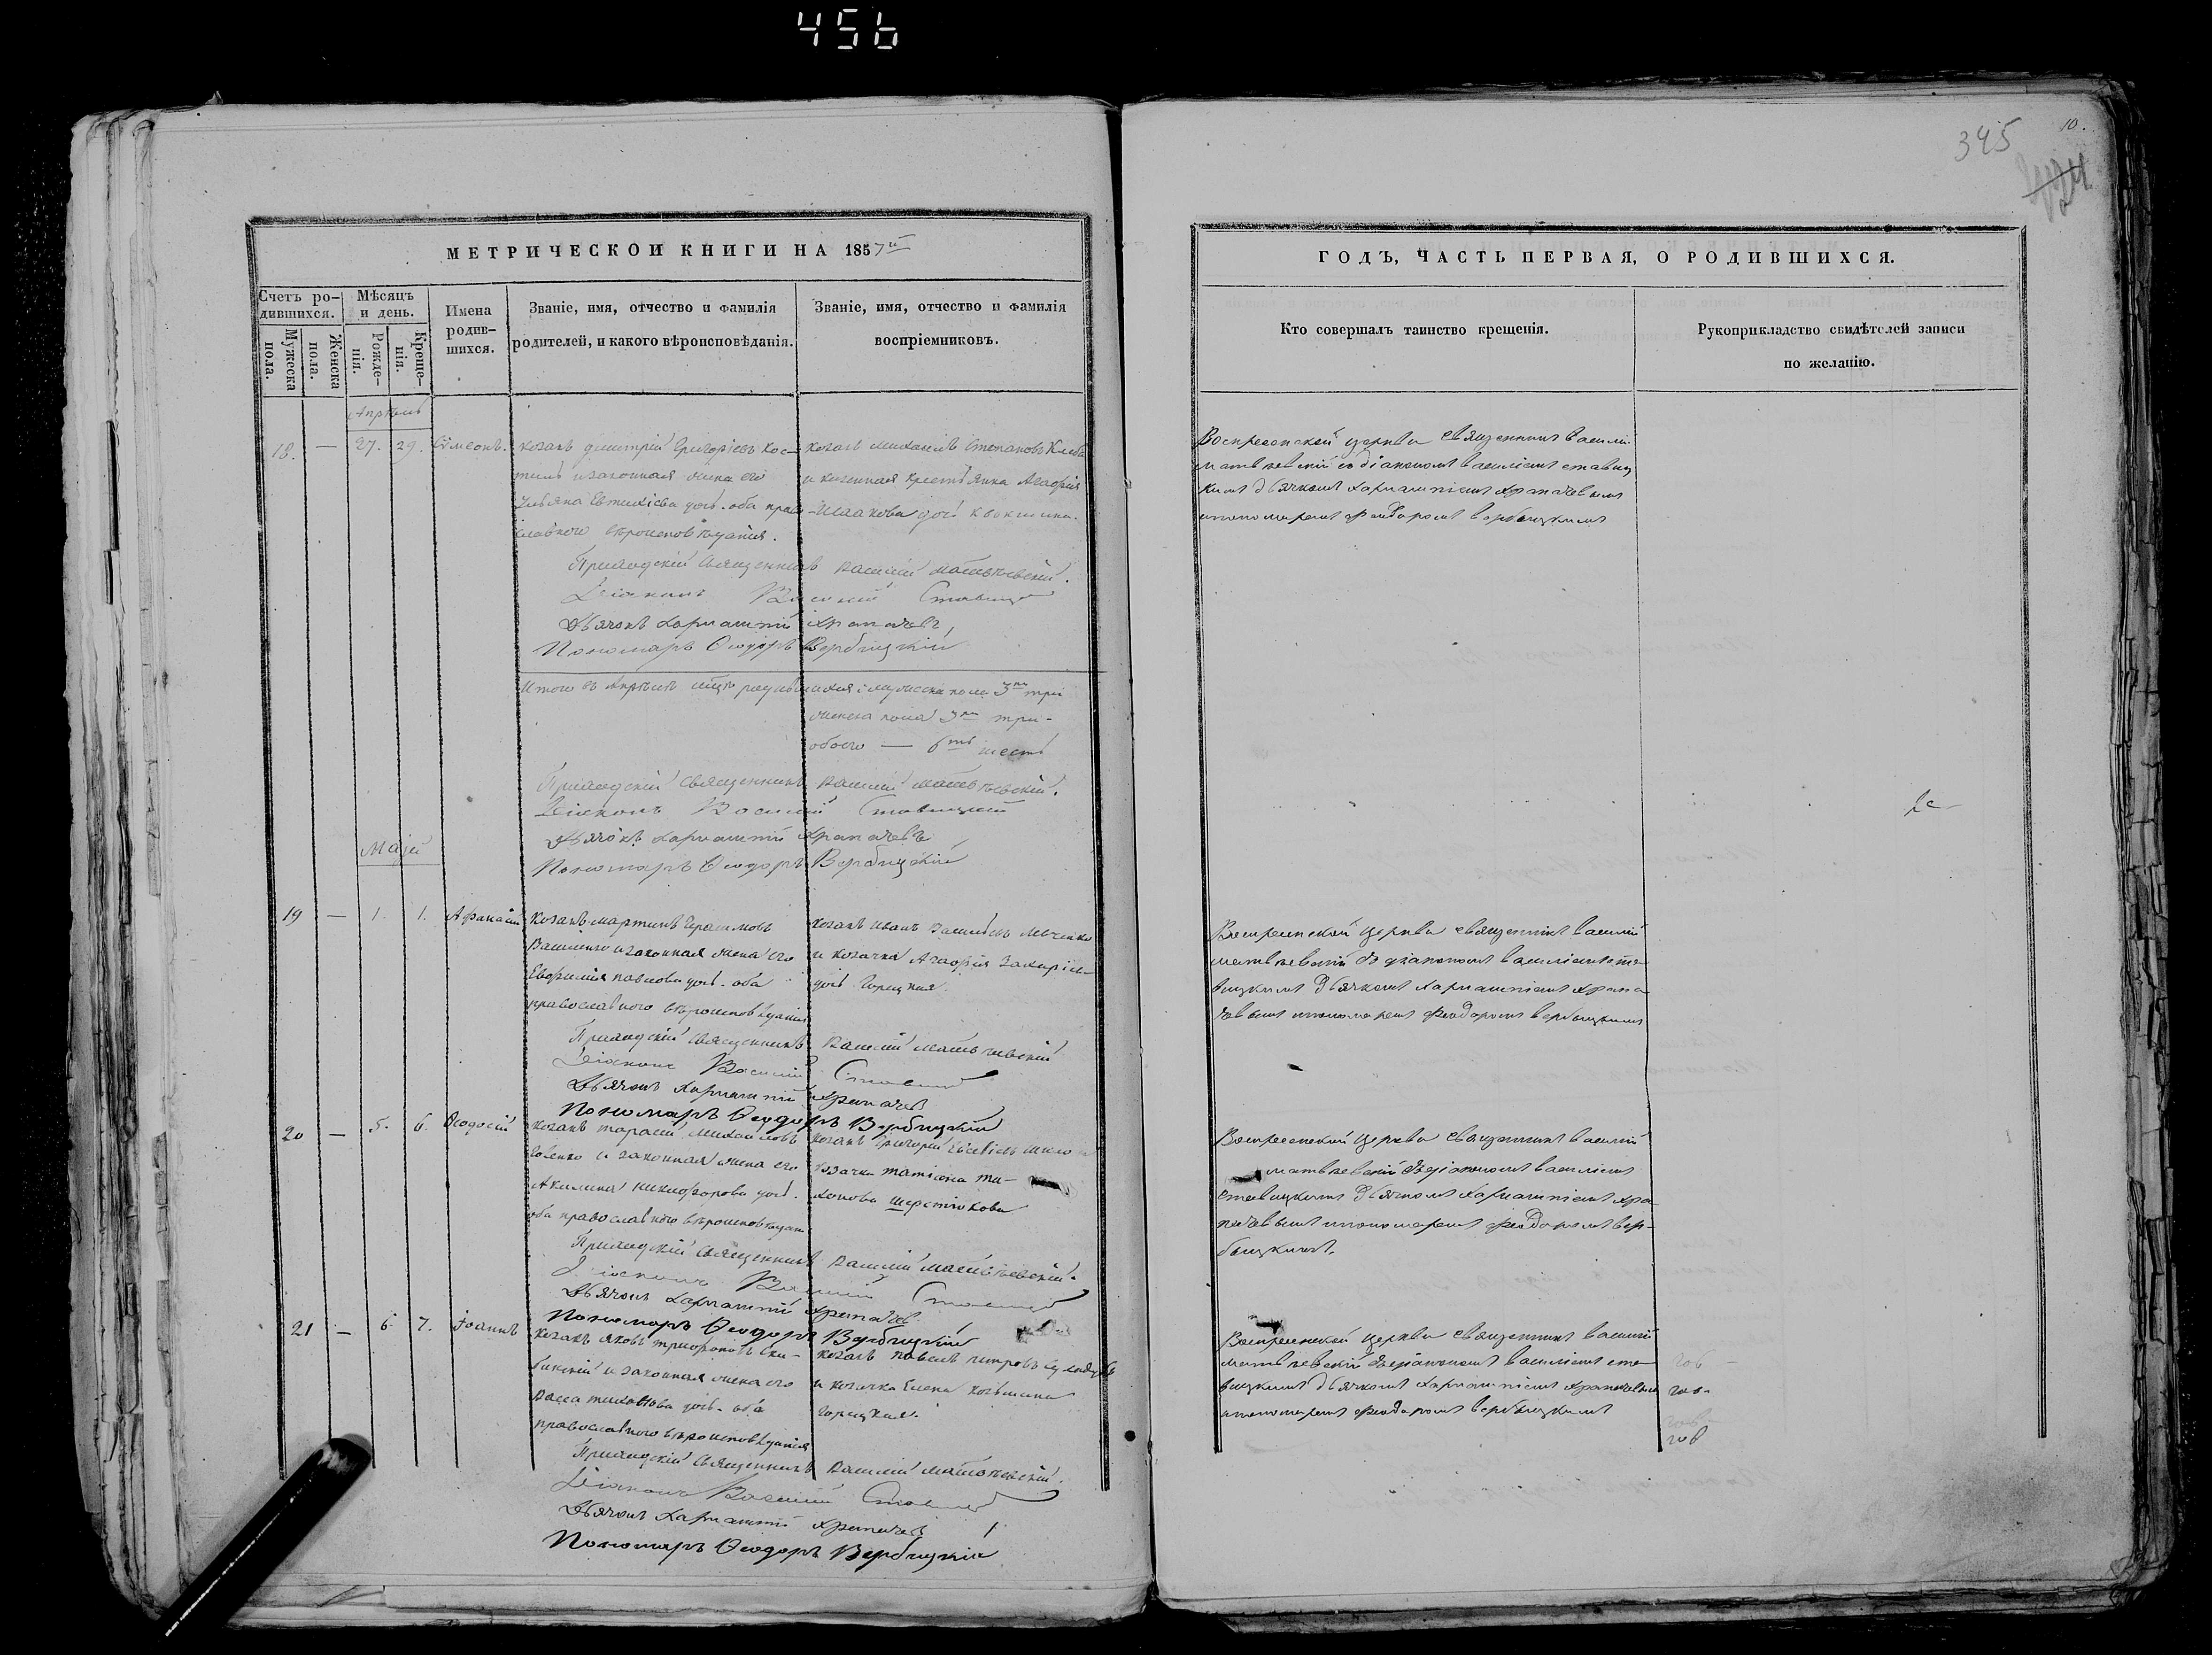 456
345
10.
МЕТРИЧЕСКОЙ КНИГИ НА 1857й
Счетъ ро-
дившихся.
Мѣсяцъ
и день.
Имена
родив-
шихся.
Званіе, имя, отчество и фамилія
родителей, и какого вѣроисповѣданія.
Званіе, имя, отчество и фамилія
воспріемниковъ.
Мужеска
пола.
Женска
пола.
Рожде-
нія.
Креще-
нія.
Апрѣль
18. — 27. 29. Сѵмеонъ.
козакъ Димитрій Григоріевъ Кос-
и законная жена его
Евтихіева дочь. оба право-
славного вѣроисповѣданія.
козакъ Михаилъ Степановъ
и казенная крестьянка Агафія
Исаакова дочь
Приходскій Священникъ Василій Матвѣевскій.
Діаконъ Василій Ставицкій
Дьячокъ Харлампій Храпачевъ
Пономарь Ѳеодоръ Вербицкій
Итого въ Апрѣлѣ мѣсяцѣ родившихся: мужеска пола 3ри три
женска пола 3ри три-
обоего — 6ть шесть
Приходскій Священникъ Василій Матвѣевскій.
Діаконъ Василій Ставицкій
Дьячокъ Харлампій Храпачевъ
Пономарь Ѳеодоръ Вербицкій
Маій
19 — 1. 1. Афанасій
козакъ Мартинъ Герасимовъ
Василенко и законная жена его
Евфимія Павлова дочь. оба
православного вѣроисповѣданія
козакъ Иванъ Васильевъ
и козачка Агафія Захаріева
дочь Горицкая.
Приходскій Священникъ Василій Матвѣевскій
Діаконъ Василій Ставицкій
Дьячокъ Харлампій Храпачевъ
Пономарь Ѳеодоръ Вербицкій
20 — 5. 6. Ѳеодосій
козакъ Тарасій Михайловъ
и законная жена его
Акилина Никифорова дочь.
оба православного вѣроисповѣдан.
козакъ Григорій Евсевіевъ
козачка Татіана Ти-
хонова Шерстюкова
Приходскій Священникъ Василій Матвѣевскій.
Діаконъ Василій Ставицкій
Дьячокъ Харлампій Храпачевъ
Пономарь Ѳеодоръ Вербицкій
21 — 6. 7. Іоаннъ
козакъ Яковъ Трифоновъ
и законная жена его
Васса Тихонова дочь. оба
православного вѣроисповѣданія
козакъ Павелъ Петровъ
и козачка Елена Козьмина
Горицкая.
Приходскій Священникъ Василій Матвѣевскій.
Діаконъ Василій Ставицкій
Дьячокъ Харлампій Храпачевъ
Пономарь Ѳеодоръ Вербицкій
ГОДЪ, ЧАСТЬ ПЕРВАЯ, О РОДИВШИХСЯ.
Кто совершалъ таинство крещенія.
Рукоприкладство свидѣтелей записи
по желанію.
Воскресенской церкви священникъ Василій
Матвѣевскій съ діакономъ Василіемъ Ставиц
кимъ дьячкомъ Харлампіемъ Храпачевымъ
и пономаремъ Феодоромъ Вербицкимъ
Воскресенской церкви священникъ Василій
Матвѣевскій съ діакономъ Василіемъ Ста
вицкимъ дьячкомъ Харлампіемъ Храпа
чевымъ и пономаремъ Феодоромъ Вербицкимъ
Воскресенской церкви священникъ Василій
Матвѣевскій съ діакономъ Василіемъ
Ставицкимъ дьячкомъ Харлампіемъ Хра
пачевымъ и пономаремъ Феодоромъ Вер-
бицкимъ.
Воскресенской церкви священникъ Василій
Матвѣевскій съ діакономъ Василіемъ Ста
вицкимъ дьячкомъ Харлампіемъ Храпачевымъ
и пономаремъ Феодоромъ Вербицкимъ